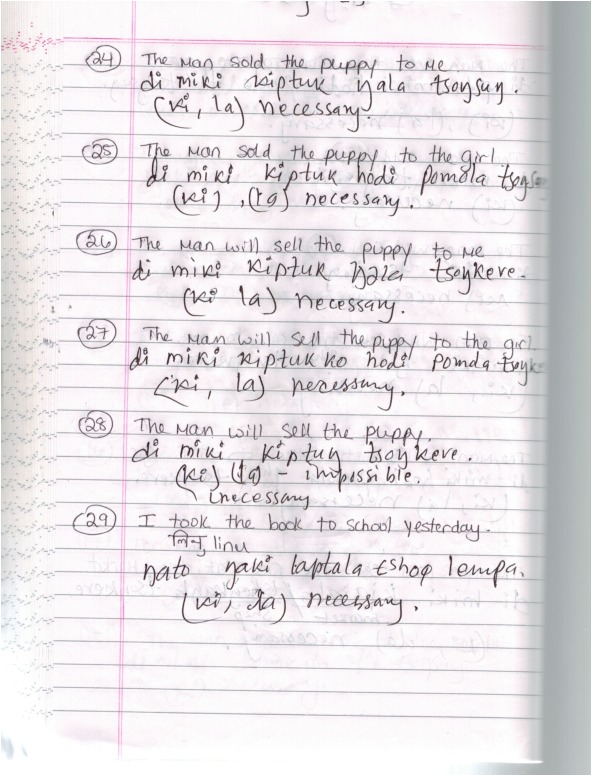 (24) The Man sold the puppy to Me
di miki kiptuk ŋala tsoŋsuŋ.
(ki, la) necessary.
(25) The Man sold the puppy to the girl.
di miki kiptuk hodi pomola
(ki), (la) necessary.
(26) The Man will sell the puppy to Me
di miki kiptuk ŋala tsoŋkeve.
(ki la) necessary.
(27) The Man will sell the puppy to the girl.
di miki kiptuk ko hodi pomda
(ki, la) necessary.
(28) The Man will sell the puppy.
di miki kiptuŋ tsoŋkeve.
(ki) (la) - impossible.
necessary
(29) I took the book to school yesterday.
linu
ŋato ŋaki laptala tshoq lempa.
(ki, la) necessary.